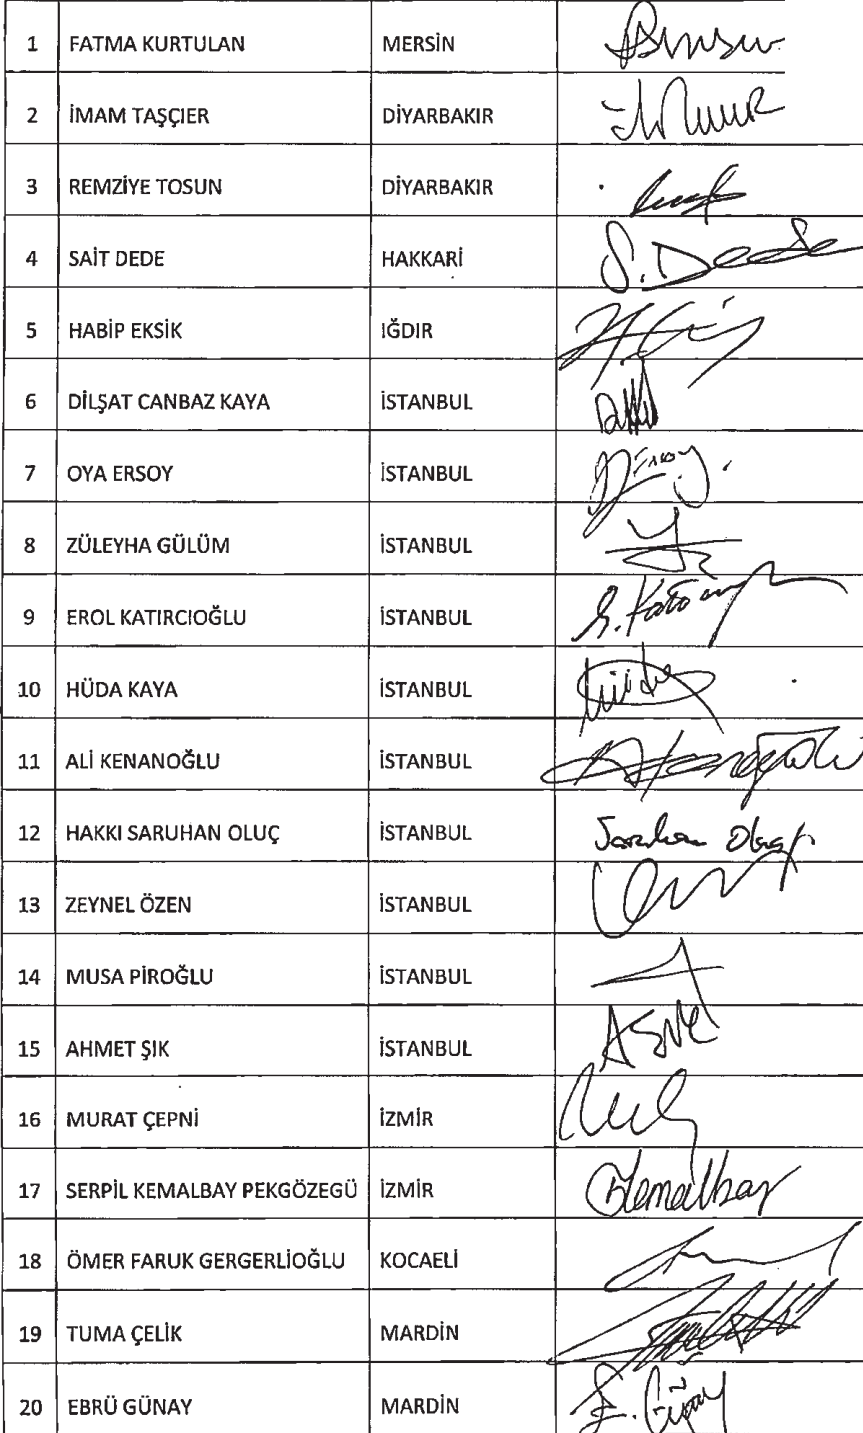 1 FATMA KURTULAN MERSİN
2 İMAM TAŞÇIER DİYARBAKIR
3 REMZİYE TOSUN DİYARBAKIR
4 SAİT DEDE HAKKARİ S. Dede
5 HABİP EKSİK IĞDIR
6 DİLŞAT CANBAZ KAYA İSTANBUL
7 OYA ERSOY İSTANBUL
8 ZÜLEYHA GÜLÜM İSTANBUL
9 EROL KATIRCIOĞLU İSTANBUL
10 HÜDA KAYA İSTANBUL
11 ALİ KENANOĞLU İSTANBUL
12 HAKKI SARUHAN OLUÇ İSTANBUL Saruhan Oluç
13 ZEYNEL ÖZEN İSTANBUL
14 MUSA PİROĞLU İSTANBUL
15 AHMET ŞIK İSTANBUL
16 MURAT ÇEPNİ İZMİR
17 SERPİL KEMALBAY PEKGÖZEGÜ İZMİR Kemalbay
18 ÖMER FARUK GERGERLİOĞLU KOCAELİ
19 TUMA ÇELİK MARDİN
20 EBRÜ GÜNAY MARDİN E. Günay